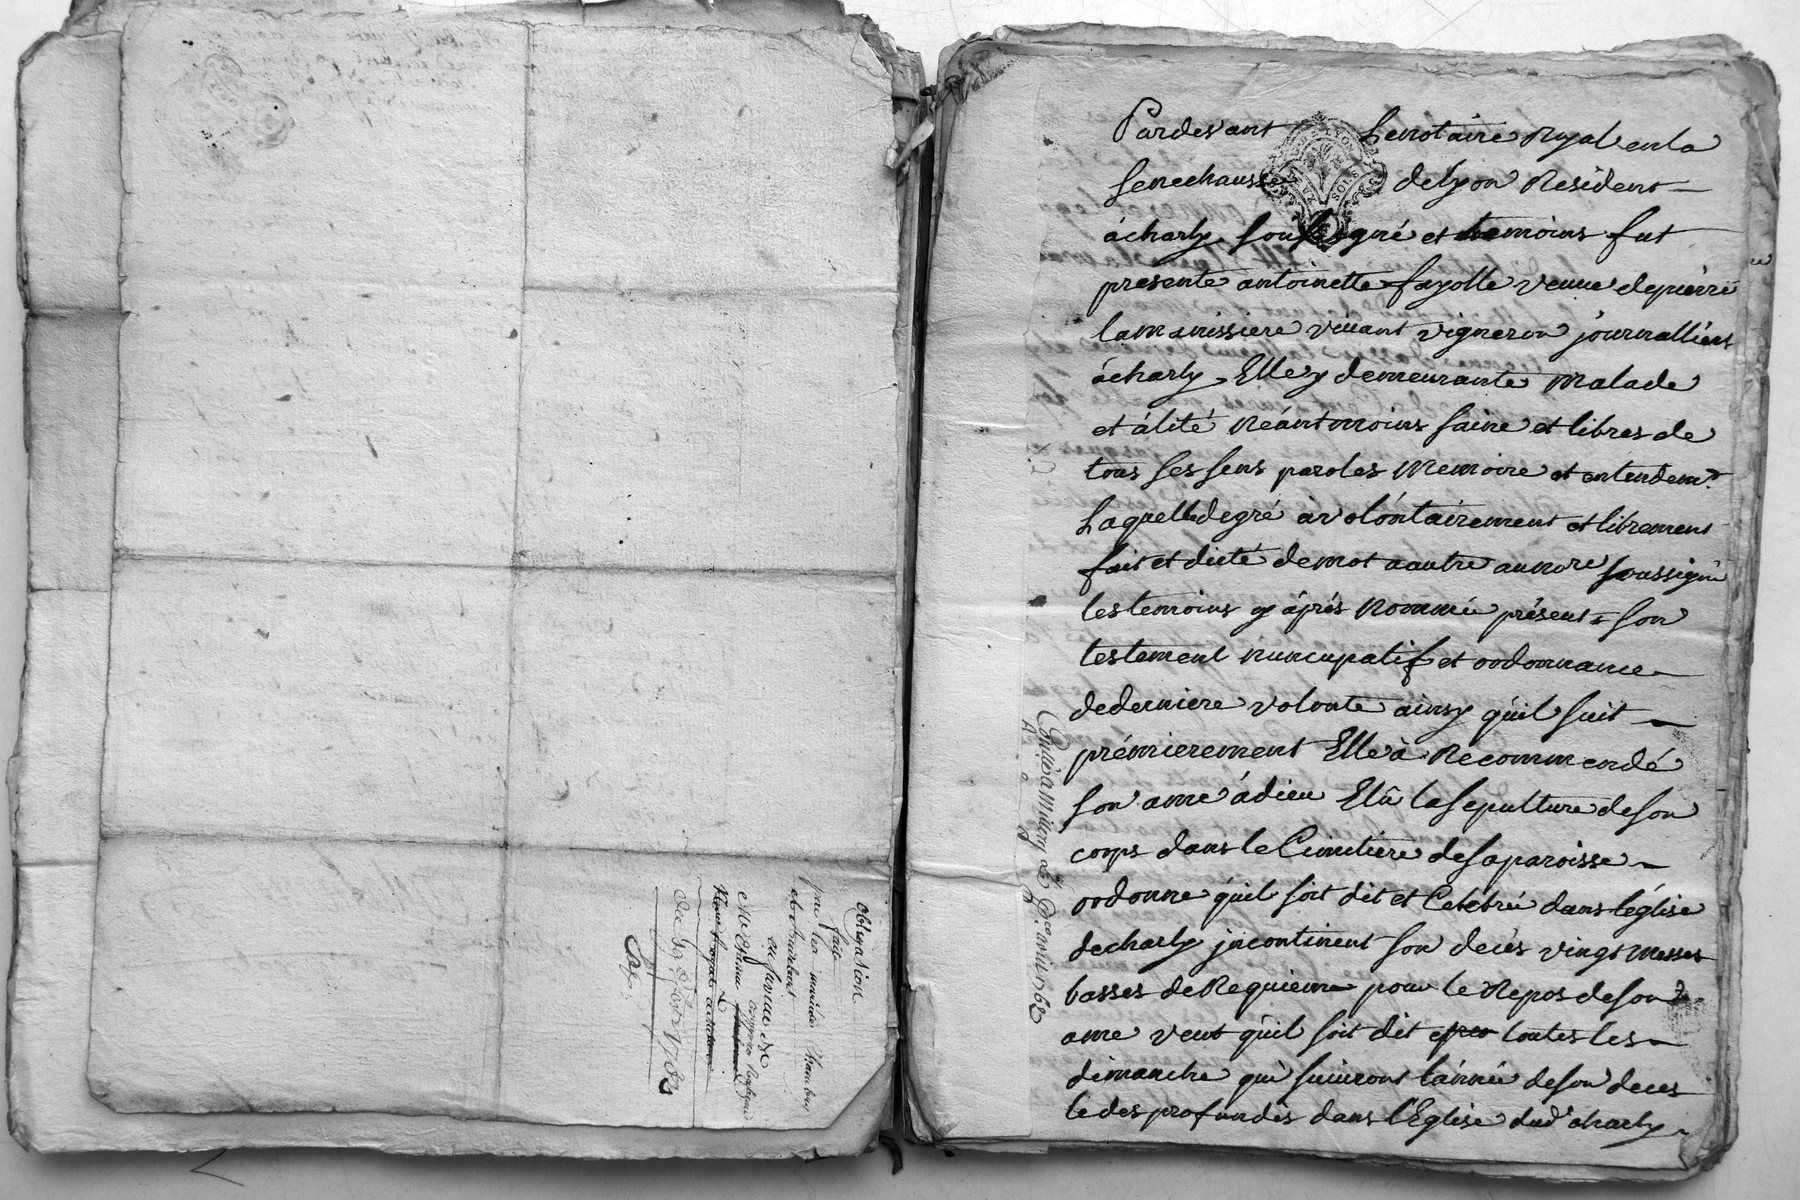 obligation
faite
par les mariés Chambry
en faveur de
du 30 8bre 1783
Pardevant Le notaire Royal en la
senechaussé de lyon Résident
à charly soussigné et temoins fut
presente antoinette fayolle veuve de pierre
lamanissiere vivant vigneron journalliers
à charly Elle y demeurante malade
et alité néantmoins saine et libres de
tous ses sens paroles memoire et entendemt
Laquelle de gré a volontairement et librement
fait et dicté de mot a autre au nore soussigné
les temoins cy aprés nommés présents son
testement nuncupatif et ordonnance
de derniere volonte ainsy qu'il suit
prémierement Elle à Recommendé
son ame à dieu Et à la sepulture de son
corps dans le Cimitiere de sa paroisse
ordonne quil soit dit et Celébré dans léglise
de charly jncontinent son decés vingt messes
basses de Requiem pour le Repos de son
ame veut qu'il soit dit toutes les
dimanche qui suivront l'année de son deces
le des profundis dans l'Eglise dud charly